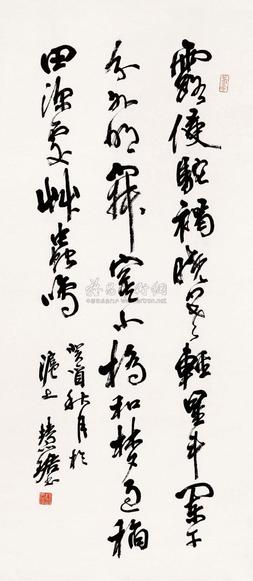 露侵駝褐曉寒輕星斗闌干
分外明寂寞小橋和夢過稻
田深處艸蟲鳴
癸酉秋月於
滬上慧珺